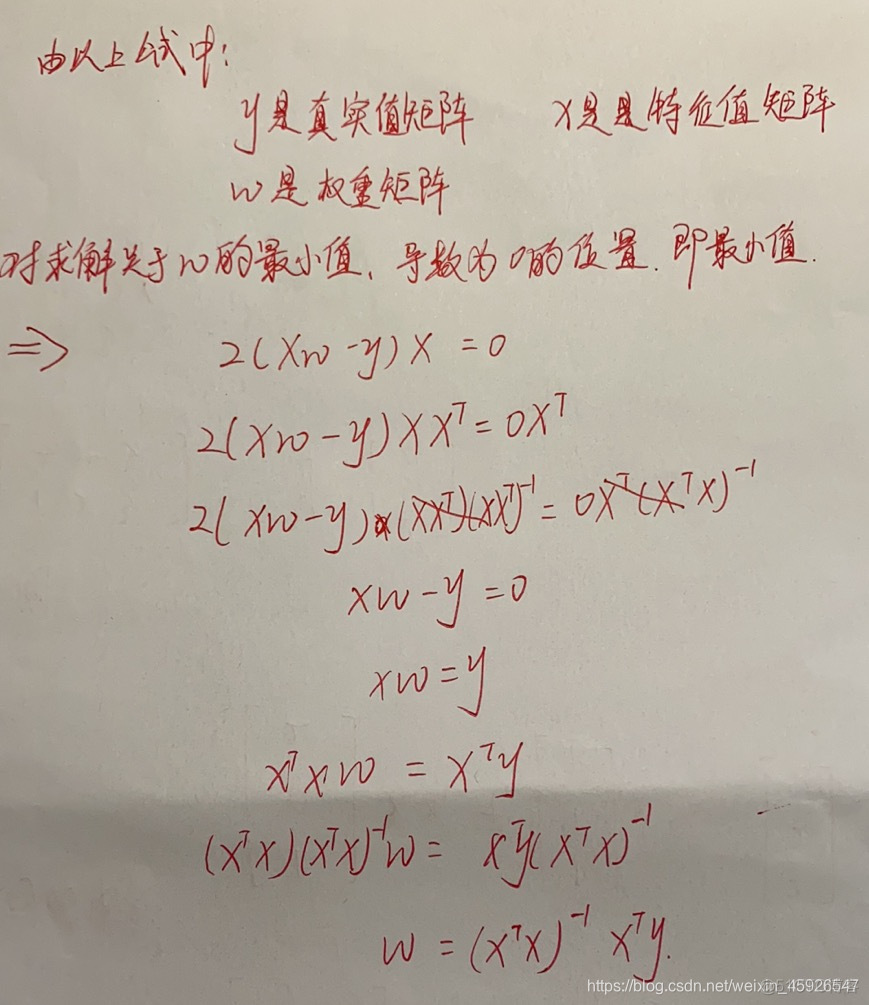 由以上公式中:
y是真实值矩阵 x是是特征值矩阵
w是权重矩阵
对求解关于w的最小值, 导数为0的位置. 即最小值.
=> 2(Xw-y)X=0
2(Xw-y)XX^T=0X^T
2(Xw-y)(XX^T)(XX^T)^-1=0X^T(X^TX)^-1
xw-y=0
xw=y
x^Txw=x^Ty
(X^TX)(X^TX)^-1w=X^Ty(X^TX)^-1
w=(X^TX)^-1X^Ty.
https://blog.csdn.net/weixin_45926547